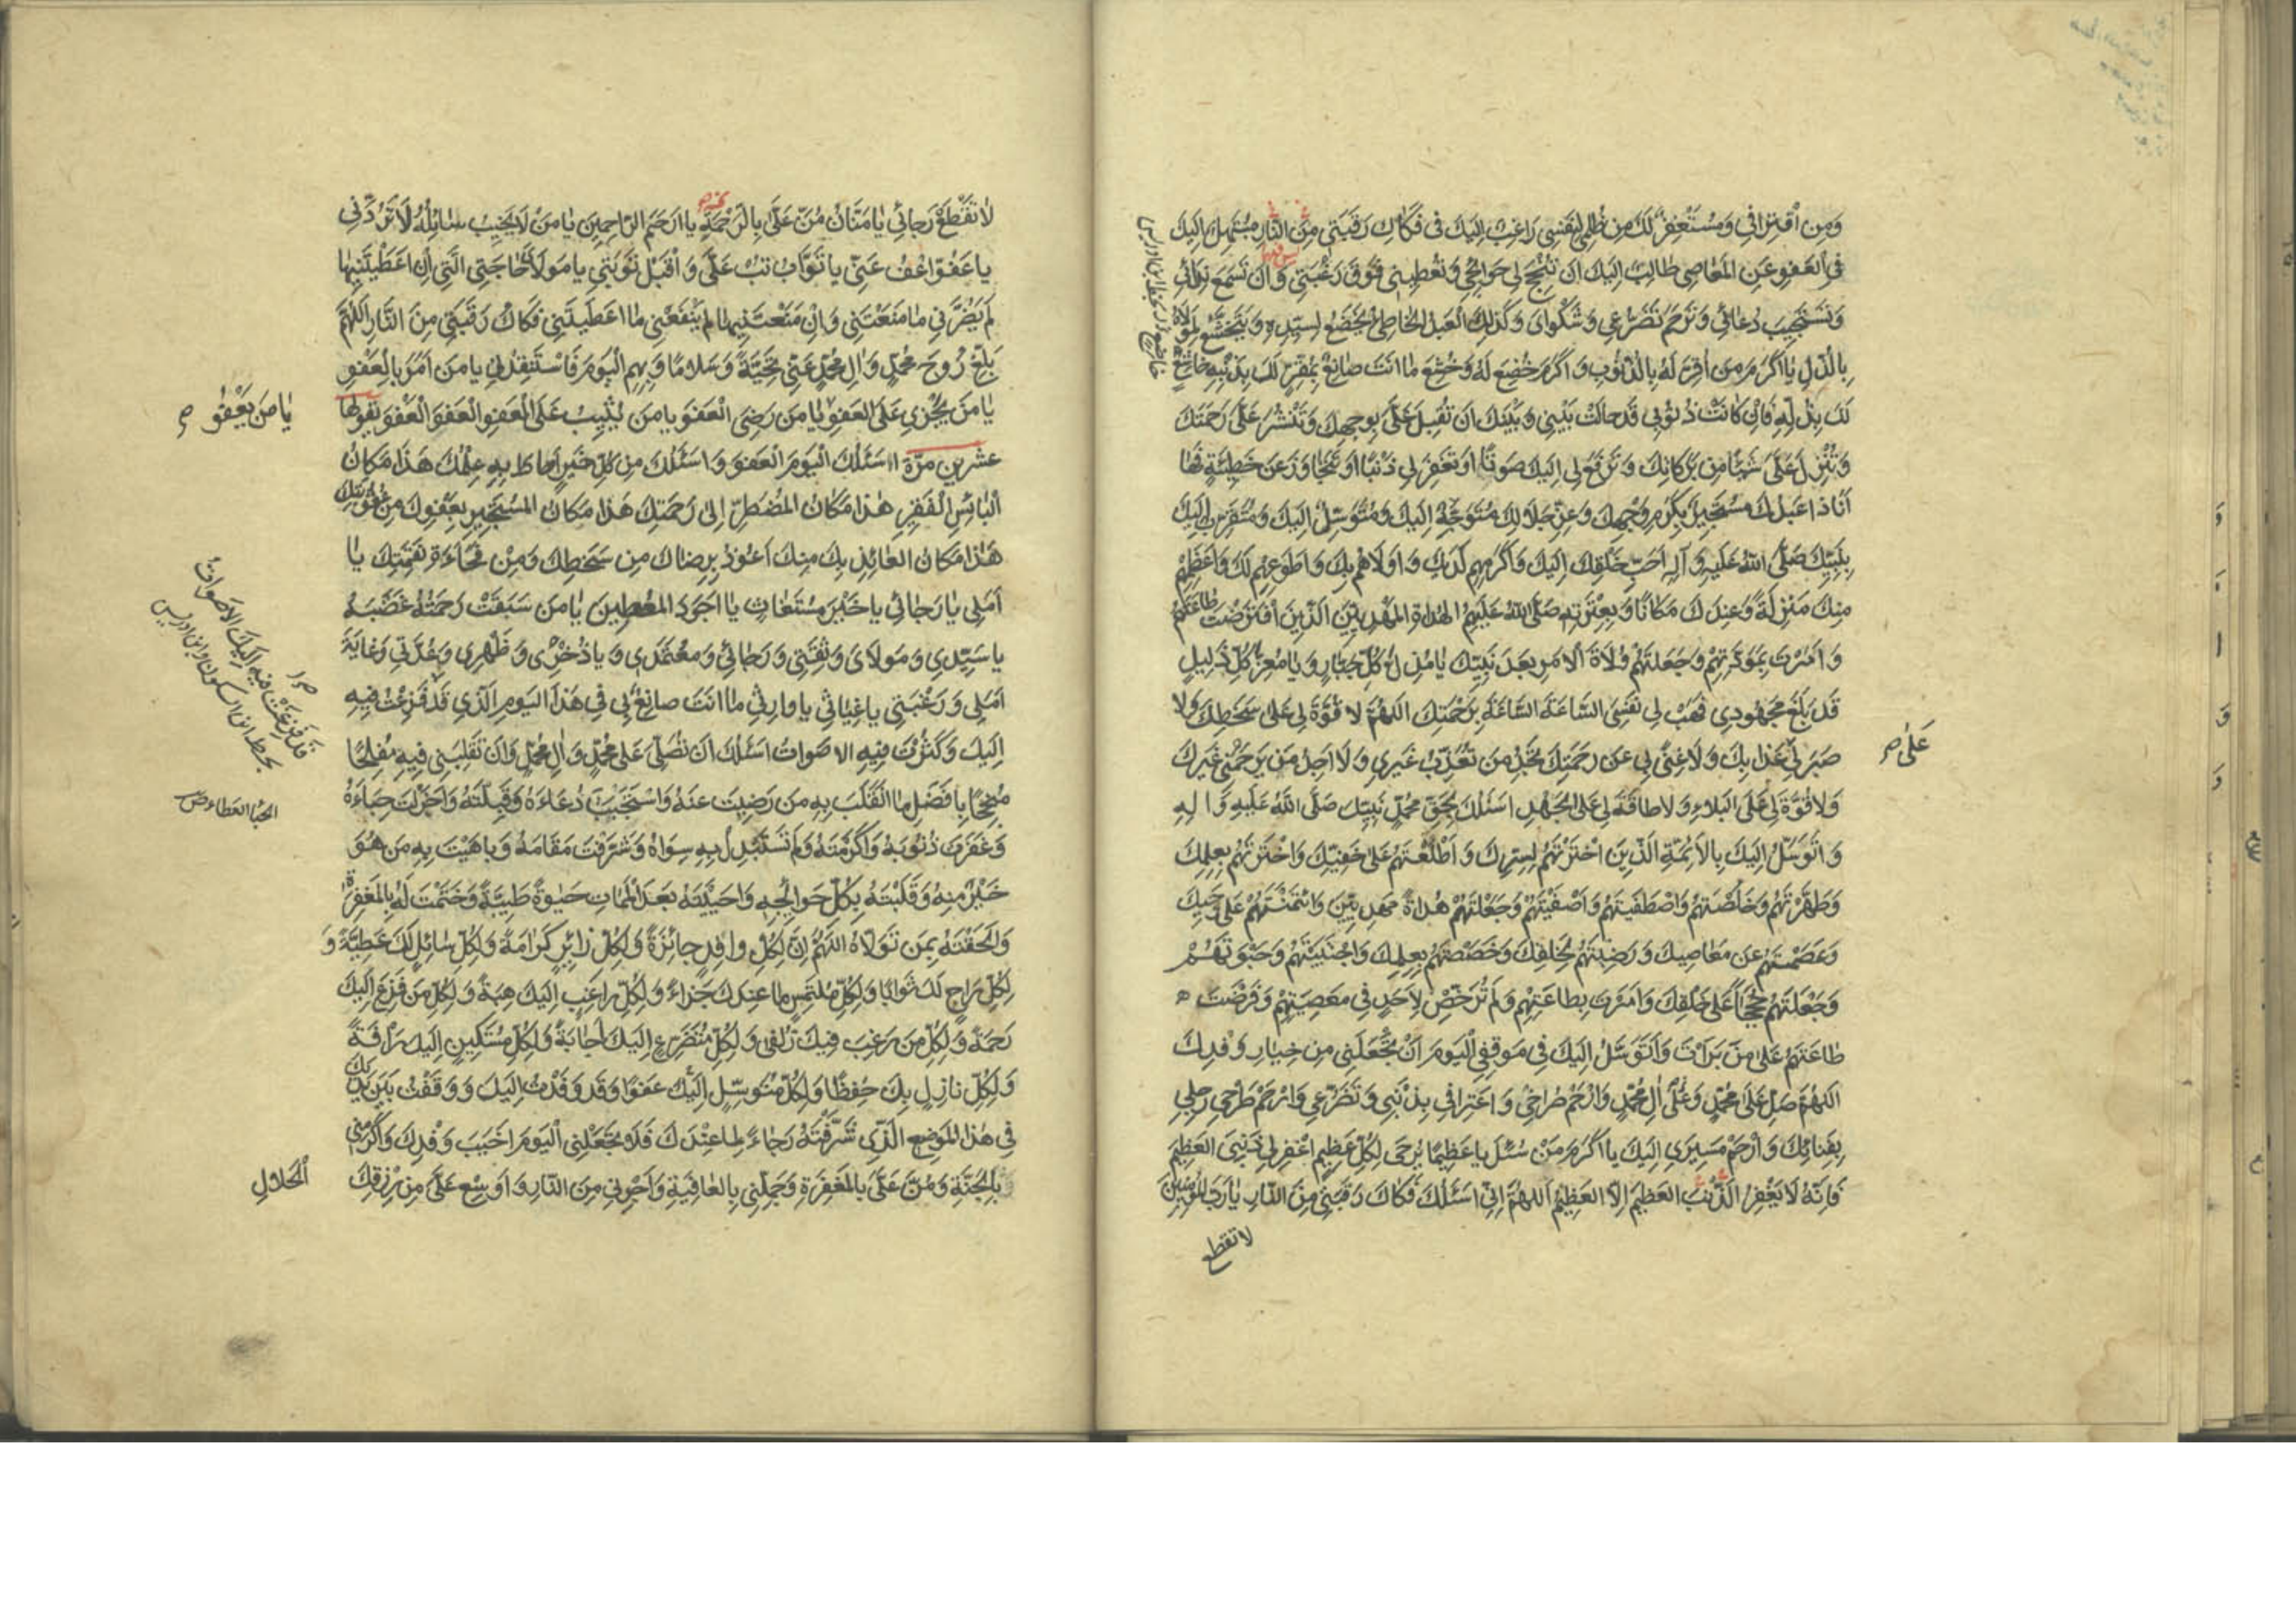 وَمِنِ اقْتِرافي وَمُسْتَغْفِرٌ لَكَ مِن ظُلْمي لِنَفْسي رَاغِبٌ اِلَيْكَ في فَكَاكِ رَقَبَتي مِنَ النَّارِ مُبْتَهِلٌ اِلَيْكَ
فِي الْعَفْوِ عَنِ المَعَاصِى طَالِبٌ اِلَيْكَ اَن تُنْجِحَ لي حَوَائِجي وَتُعْطِيَنى فَوْقَ رَغْبَتي وَاَن تَسْمَعَ نِدَائي
وَتَسْتَجيبَ دُعَائي وَتَرْحَمَ تَضَرُّعي وَشَكْوَايَ وَكَذلِكَ الْعَبْدُ الخَاطِئُ يَخْضَعُ لِسَيِّدِهِ وَيَتَخَشَّعُ لِمَوْلَاهُ
بِالذُّلِّ يَا اَكْرَمَ مَن اُقِرَّ لَهُ بِالذُّنُوبِ وَاَكْرَمَ مَن خُضِعَ لَهُ وَخُشِعَ مَا اَنْتَ صَانِعٌ بِمُقِرٍّ لَكَ بِذَنْبِهِ خَاشِعٍ
لَكَ بِذُلِّهِ فَاِن كَانَتْ ذُنُوبي قَد حَالَتْ بَيْني وَبَيْنَكَ اَن تُقْبِلَ عَلَيَّ بِوَجْهِكَ وَتَنْشُرَ عَلَيَّ رَحْمَتَكَ
وَتُنْزِلَ عَلَيَّ شَيْئًا مِن بَرَكَاتِكَ وَتَرْفَعَ لي اِلَيْكَ صَوْتًا اَو تَغْفِرَ لي ذَنْبًا اَو تَتَجَاوَزَ عَن خَطِيئَةٍ فَهَا
اَنَا ذَا عَبْدُكَ مُسْتَجِيرٌ بِكَرَمِ وَجْهِكَ وَعِزِّ جَلَالِكَ مُتَوَجِّهٌ اِلَيْكَ وَمُتَوَسِّلٌ اِلَيْكَ وَمُتَقَرِّبٌ اِلَيْكَ
بِنَبِيِّكَ صَلَّى اللهُ عَلَيْهِ وَآلِهِ اَحَبِّ خَلْقِكَ اِلَيْكَ وَاَكْرَمِهِم لَدَيْكَ وَاَوْلَاهُم بِكَ وَاَطْوَعِهِم لَكَ وَاَعْظَمِهِم
مِنْكَ مَنْزِلَةً وَعِنْدَكَ مَكَانًا وَبِعِتْرَتِهِ صَلَّى اللهُ عَلَيْهِمُ الهُدَاةِ المَهْدِيّينَ الَّذِينَ افْتَرَضْتَ طَاعَتَهُم
وَاَمَرْتَ بِمَوَدَّتِهِم وَجَعَلْتَهُم وُلَاةَ الاَمْرِ بَعْدَ نَبِيِّكَ يَا مُذِلَّ كُلِّ جَبَّارٍ وَيَا مُعِزَّ كُلِّ ذَلِيلٍ
قَد بَلَغَ مَجْهُودي فَهَبْ لي نَفْسي السَّاعَةَ السَّاعَةَ بِرَحْمَتِكَ اللهُمَّ لا قُوَّةَ لي عَلى سَخَطِكَ وَلا
صَبْرَ لي عَذَابِكَ وَلَا غِنًى لي عَن رَحْمَتِكَ تَجِدُ مَن تُعَذِّبُ غَيْري وَلَا اَجِدُ مَن يَرْحَمُني غَيْرَكَ
عَلى
وَلَا قُوَّةَ لي عَلَى البَلاءِ وَلا طَاقَةَ لي عَلَى الجَهْدِ اَسْئَلُكَ بِحَقِّ مُحَمَّدٍ نَبِيِّكَ صَلَّى اللهُ عَلَيْهِ وَآلِهِ
وَاَتَوَسَّلُ اِلَيْكَ بِالاَئِمَّةِ الَّذِينَ اخْتَرْتَهُم لِسِرِّكَ وَاَطْلَعْتَهُم عَلى خَفِيِّكَ وَاخْتَرْتَهُم بِعِلْمِكَ
وَطَهَّرْتَهُم وَخَلَّصْتَهُم وَاصْطَفَيْتَهُم وَاَصْفَيْتَهُم وَجَعَلْتَهُم هُدَاةً مَهْدِيّينَ وَائْتَمَنْتَهُم عَلى وَحْيِكَ
وَعَصَمْتَهُم عَن مَعَاصِيكَ وَرَضِيتَهُم لِخَلْقِكَ وَخَصَصْتَهُم بِعِلْمِكَ وَاجْتَبَيْتَهُم وَحَبَوْتَهُم
وَجَعَلْتَهُم حُجَجًا عَلى خَلْقِكَ وَاَمَرْتَ بِطَاعَتِهِم وَلَم تُرَخِّصْ لِاَحَدٍ في مَعْصِيَتِهِم وَفَرَضْتَ
طَاعَتَهُم عَلى مَن بَرَأْتَ وَاَتَوَسَّلُ اِلَيْكَ في مَوْقِفي الْيَوْمَ اَنْ تَجْعَلَني مِن خِيَارِ وَفْدِكَ
اللهُمَّ صَلِّ عَلى مُحَمَّدٍ وَعَلى آلِ مُحَمَّدٍ وَارْحَمْ صُرَاخي وَاعْتِرَافي بِذَنْبي وَتَضَرُّعي وَارْحَمْ طَرْحي رَحْلي
بِفِنَائِكَ وَارْحَمْ مَسِيري اِلَيْكَ يَا اَكْرَمَ مَنْ سُئِلَ يَا عَظِيمًا يُرْجَى لِكُلِّ عَظِيمٍ اغْفِر لي ذَنْبِيَ العَظِيمَ
فَاِنَّهُ لَا يَغْفِرُ الذَّنْبَ العَظِيمَ اِلَّا العَظِيمُ اللهُمَّ اِنّي اَسْئَلُكَ فَكَاكَ رَقَبَتي مِنَ النَّارِ يَا رَبَّ المُؤْمِنِينَ
لا تقطع
لَا تَقْطَعْ رَجَائي يَا مَنَّانُ مُنَّ عَلَيَّ بِالرَّحْمَةِ يَا اَرْحَمَ الرَّاحِمِينَ يَا مَنْ لَا يَخِيبُ سَائِلُهُ لَا تَرُدَّني
يَا عَفُوُّ اعْفُ عَنّي يَا تَوَّابُ تُبْ عَلَيَّ وَاقْبَلْ تَوْبَتي يَا مَوْلَايَ حَاجَتي الَّتي اِن اَعْطَيْتَنِيهَا
لَم يَضُرَّني مَا مَنَعْتَني وَاِنْ مَنَعْتَنِيهَا لَم يَنْفَعْني مَا اَعْطَيْتَني فَكَاكُ رَقَبَتي مِنَ النَّارِ اَللهُمَّ
بَلِّغْ رُوحَ مُحَمَّدٍ وَآلِ مُحَمَّدٍ عَنّي تَحِيَّةً وَسَلامًا وَبِهِمِ الْيَوْمَ فَاسْتَنْقِذْني يَا مَن اَمَرَ بِالْعَفْوِ
يَا مَنْ يَجْزي عَلَى العَفْوِ يَا مَن رَضِيَ الْعَفْوَ يَا مَن يُثِيبُ عَلَى الْعَفْوِ الْعَفْوَ الْعَفْوَ يَقُولُهَا
يَا مَن يَعْفُو
عشرين مرّة اَسْئَلُكَ الْيَوْمَ الْعَفْوَ وَاَسْئَلُكَ مِن كُلِّ خَيْرٍ اَحَاطَ بِهِ عِلْمُكَ هَذَا مَكَانُ
الْبَائِسِ الْفَقِيرِ هَذَا مَكَانُ المُضْطَرِّ اِلى رَحْمَتِكَ هَذَا مَكَانُ المُسْتَجِيرِ بِعَفْوِكَ مِن عُقُوبَتِكَ
هَذَا مَكَانُ العَائِذِ بِكَ مِنْكَ اَعُوذُ بِرِضَاكَ مِن سَخَطِكَ وَمِنْ فُجَاءَةِ نَقِمَتِكَ يَا
اَمَلي يَا رَجَائي يَا خَيْرَ مُسْتَغَاثٍ يَا اَجْوَدَ المُعْطِينَ يَا مَن سَبَقَتْ رَحْمَتُهُ غَضَبَهُ
يَا سَيِّدي وَمَوْلَايَ وَثِقَتي وَرَجَائي وَمُعْتَمَدي وَيَا ذُخْري وَظَهْري وَعُدَّتي وَغَايَةَ
اَمَلي وَرَغْبَتي يَا غِيَاثي يَا وَارِثي مَا اَنْتَ صَانِعٌ بي في هَذَا اليَوْمِ الَّذي قَد فَزِعْتُ فِيهِ
قَد فَزِعَتْ فيهِ اِلَيْكَ الاَصْوَاتُ
بخط ابن السكون وابن ادريس
اِلَيْكَ وَكَثُرَتْ فِيهِ الاَصْوَاتُ اَسْئَلُكَ اَن تُصَلِّيَ عَلى مُحَمَّدٍ وَآلِ مُحَمَّدٍ وَاَن تَقْلِبَني فِيهِ مُفْلِحًا
مُنْجِحًا بِاَفْضَلِ مَا انْقَلَبَ بِهِ مَن رَضِيتَ عَنْهُ وَاسْتَجَبْتَ دُعَاءَهُ وَقَبِلْتَهُ وَاَجْزَلْتَ حِبَاءَهُ
الحِبَا العطاء ص
وَغَفَرْتَ ذُنُوبَهُ وَاَكْرَمْتَهُ وَلَم تَسْتَبْدِلْ بِهِ سِوَاهُ وَشَرَّفْتَ مَقَامَهُ وَبَاهَيْتَ بِهِ مَن هُوَ
خَيْرٌ مِنْهُ وَقَلَبْتَهُ بِكُلِّ حَوَائِجِهِ وَاَحْيَيْتَهُ بَعْدَ المَمَاتِ حَيٰوةً طَيِّبَةً وَخَتَمْتَ لَهُ بِالمَغْفِرَةِ
وَاَلْحَقْتَهُ بِمَن تَوَلَّاهُ اللهُمَّ اِنَّ لِكُلِّ وَافِدٍ جَائِزَةً وَلِكُلِّ زَائِرٍ كَرَامَةً وَلِكُلِّ سَائِلٍ لَكَ عَطِيَّةً وَ
لِكُلِّ رَاجٍ لَكَ ثَوَابًا وَلِكُلِّ مُلْتَمِسٍ مَا عِنْدَكَ جَزَاءً وَلِكُلِّ رَاغِبٍ اِلَيْكَ هِبَةً وَلِكُلِّ مَن فَزِعَ اِلَيْكَ
رَحْمَةً وَلِكُلِّ مَن رَغِبَ فِيكَ زُلْفى وَلِكُلِّ مُتَضَرِّعٍ اِلَيْكَ اِجَابَةً وَلِكُلِّ مُسْتَكِينٍ اِلَيْكَ رَأْفَةً
وَلِكُلِّ نَازِلٍ بِكَ حِفْظًا وَلِكُلِّ مُتَوَسِّلٍ اِلَيْكَ عَفْوًا وَقَد وَفَدْتُ اِلَيْكَ وَوَقَفْتُ بَيْنَ يَدَيْكَ
في هَذَا المَوْضِعِ الَّذي شَرَّفْتَهُ رَجَاءً لِمَا عِنْدَكَ فَلَا تَجْعَلْني الْيَوْمَ اَخْيَبَ وَفْدِكَ وَاَكْرِمْني
بِالجَنَّةِ وَمُنَّ عَلَيَّ بِالمَغْفِرَةِ وَجَمِّلْني بِالعَافِيَةِ وَاَجِرْني مِنَ النَّارِ وَاَوْسِعْ عَلَيَّ مِن رِزْقِكَ
اَلْحَلَالِ